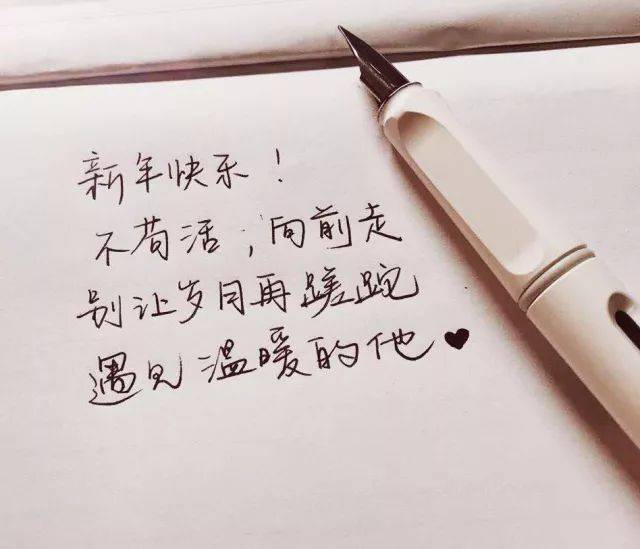 新年快乐！
不苟活；向前走
别让岁月再蹉跎
遇见温暖的他♥